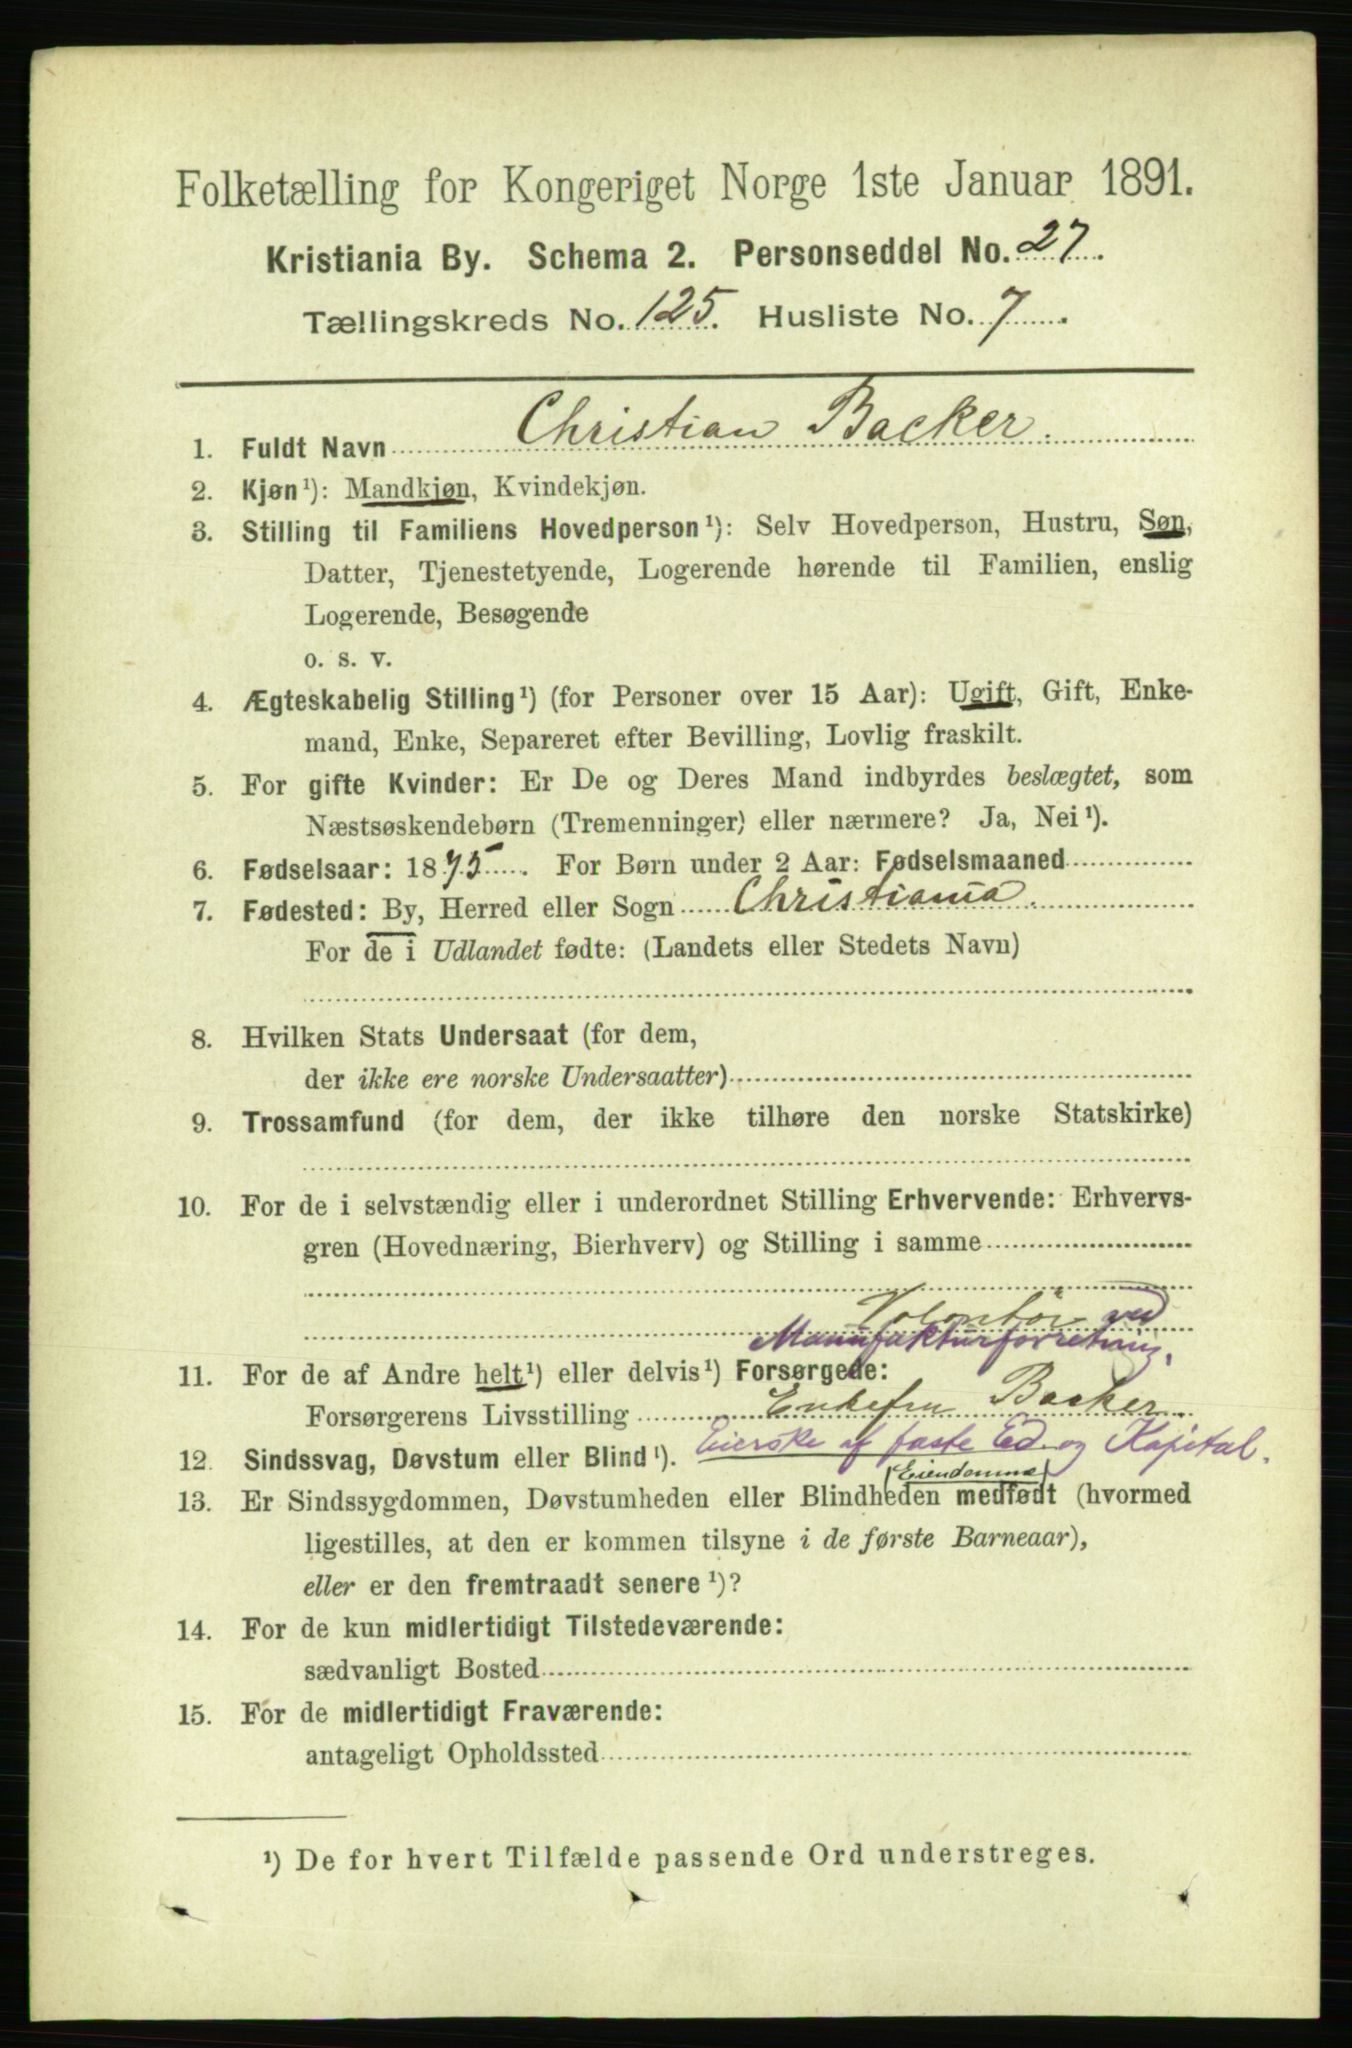 Folketælling for Kongeriget Norge 1ste Januar 1891.
Kristiania By. Schema 2. Personseddel No. 27.
Tællingskreds No. 125. Husliste No. 7.
1. Fuldt Navn Christian Backer.
2. Kjøn¹): Mandkjøn, Kvindekjøn.
3. Stilling til Familiens Hovedperson¹): Selv Hovedperson, Hustru, Søn,
Datter, Tjenestetyende, Logerende hørende til Familien, enslig
Logerende, Besøgende
o. s. v.
4. Ægteskabelig Stilling¹) (for Personer over 15 Aar): Ugift, Gift, Enke-
mand, Enke, Separeret efter Bevilling, Lovlig fraskilt.
5. For gifte Kvinder: Er De og Deres Mand indbyrdes beslægtet, som
Næstsøskendebørn (Tremenninger) eller nærmere? Ja, Nei¹).
6. Fødselsaar: 1875. For Børn under 2 Aar: Fødselsmaaned
7. Fødested: By, Herred eller Sogn Christiania.
For de i Udlandet fødte: (Landets eller Stedets Navn)
8. Hvilken Stats Undersaat (for dem,
der ikke ere norske Undersaatter)
9. Trossamfund (for dem, der ikke tilhøre den norske Statskirke)
10. For de i selvstændig eller i underordnet Stilling Erhvervende: Erhvervs-
gren (Hovednæring, Bierhverv) og Stilling i samme
Volontør ved
Manufakturforretning.
11. For de af Andre helt¹) eller delvis¹) Forsørgede:
Forsørgerens Livsstilling Enkefru Backer.
Eierske af faste Ed. og Kapital.
12. Sindssvag, Døvstum eller Blind¹).
Eiendomme
13. Er Sindssygdommen, Døvstumheden eller Blindheden medfødt (hvormed
ligestilles, at den er kommen tilsyne i de første Barneaar),
eller er den fremtraadt senere¹)?
14. For de kun midlertidigt Tilstedeværende:
sædvanligt Bosted
15. For de midlertidigt Fraværende:
antageligt Opholdssted
¹) De for hvert Tilfælde passende Ord understreges.